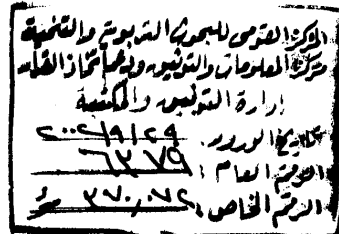 المركز القومى للبحوث التربوية والتنمية
مركز المعلومات والتوثيق ودعم اتخاذ القرار
إدارة التوثيق والمكتبة
تاريخ الورود: ٢٠٠٢/٩/٢٩
الرقم العام: ٦٣٧٩
الرقم الخاص: ٣٧٠,٠٧٢